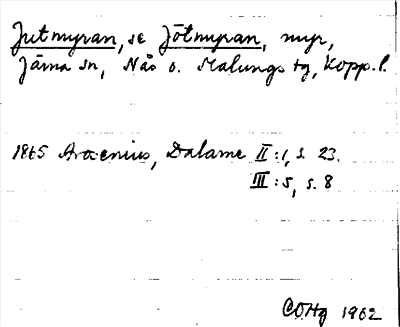 Jutmyran, se Jötmyran, myr,
Järna sn, Nås o. Malungs tg, Kopp. l.
1865 Arosenius, Dalarne II:1, s. 23.
III:5, s. 8
COHg 1962